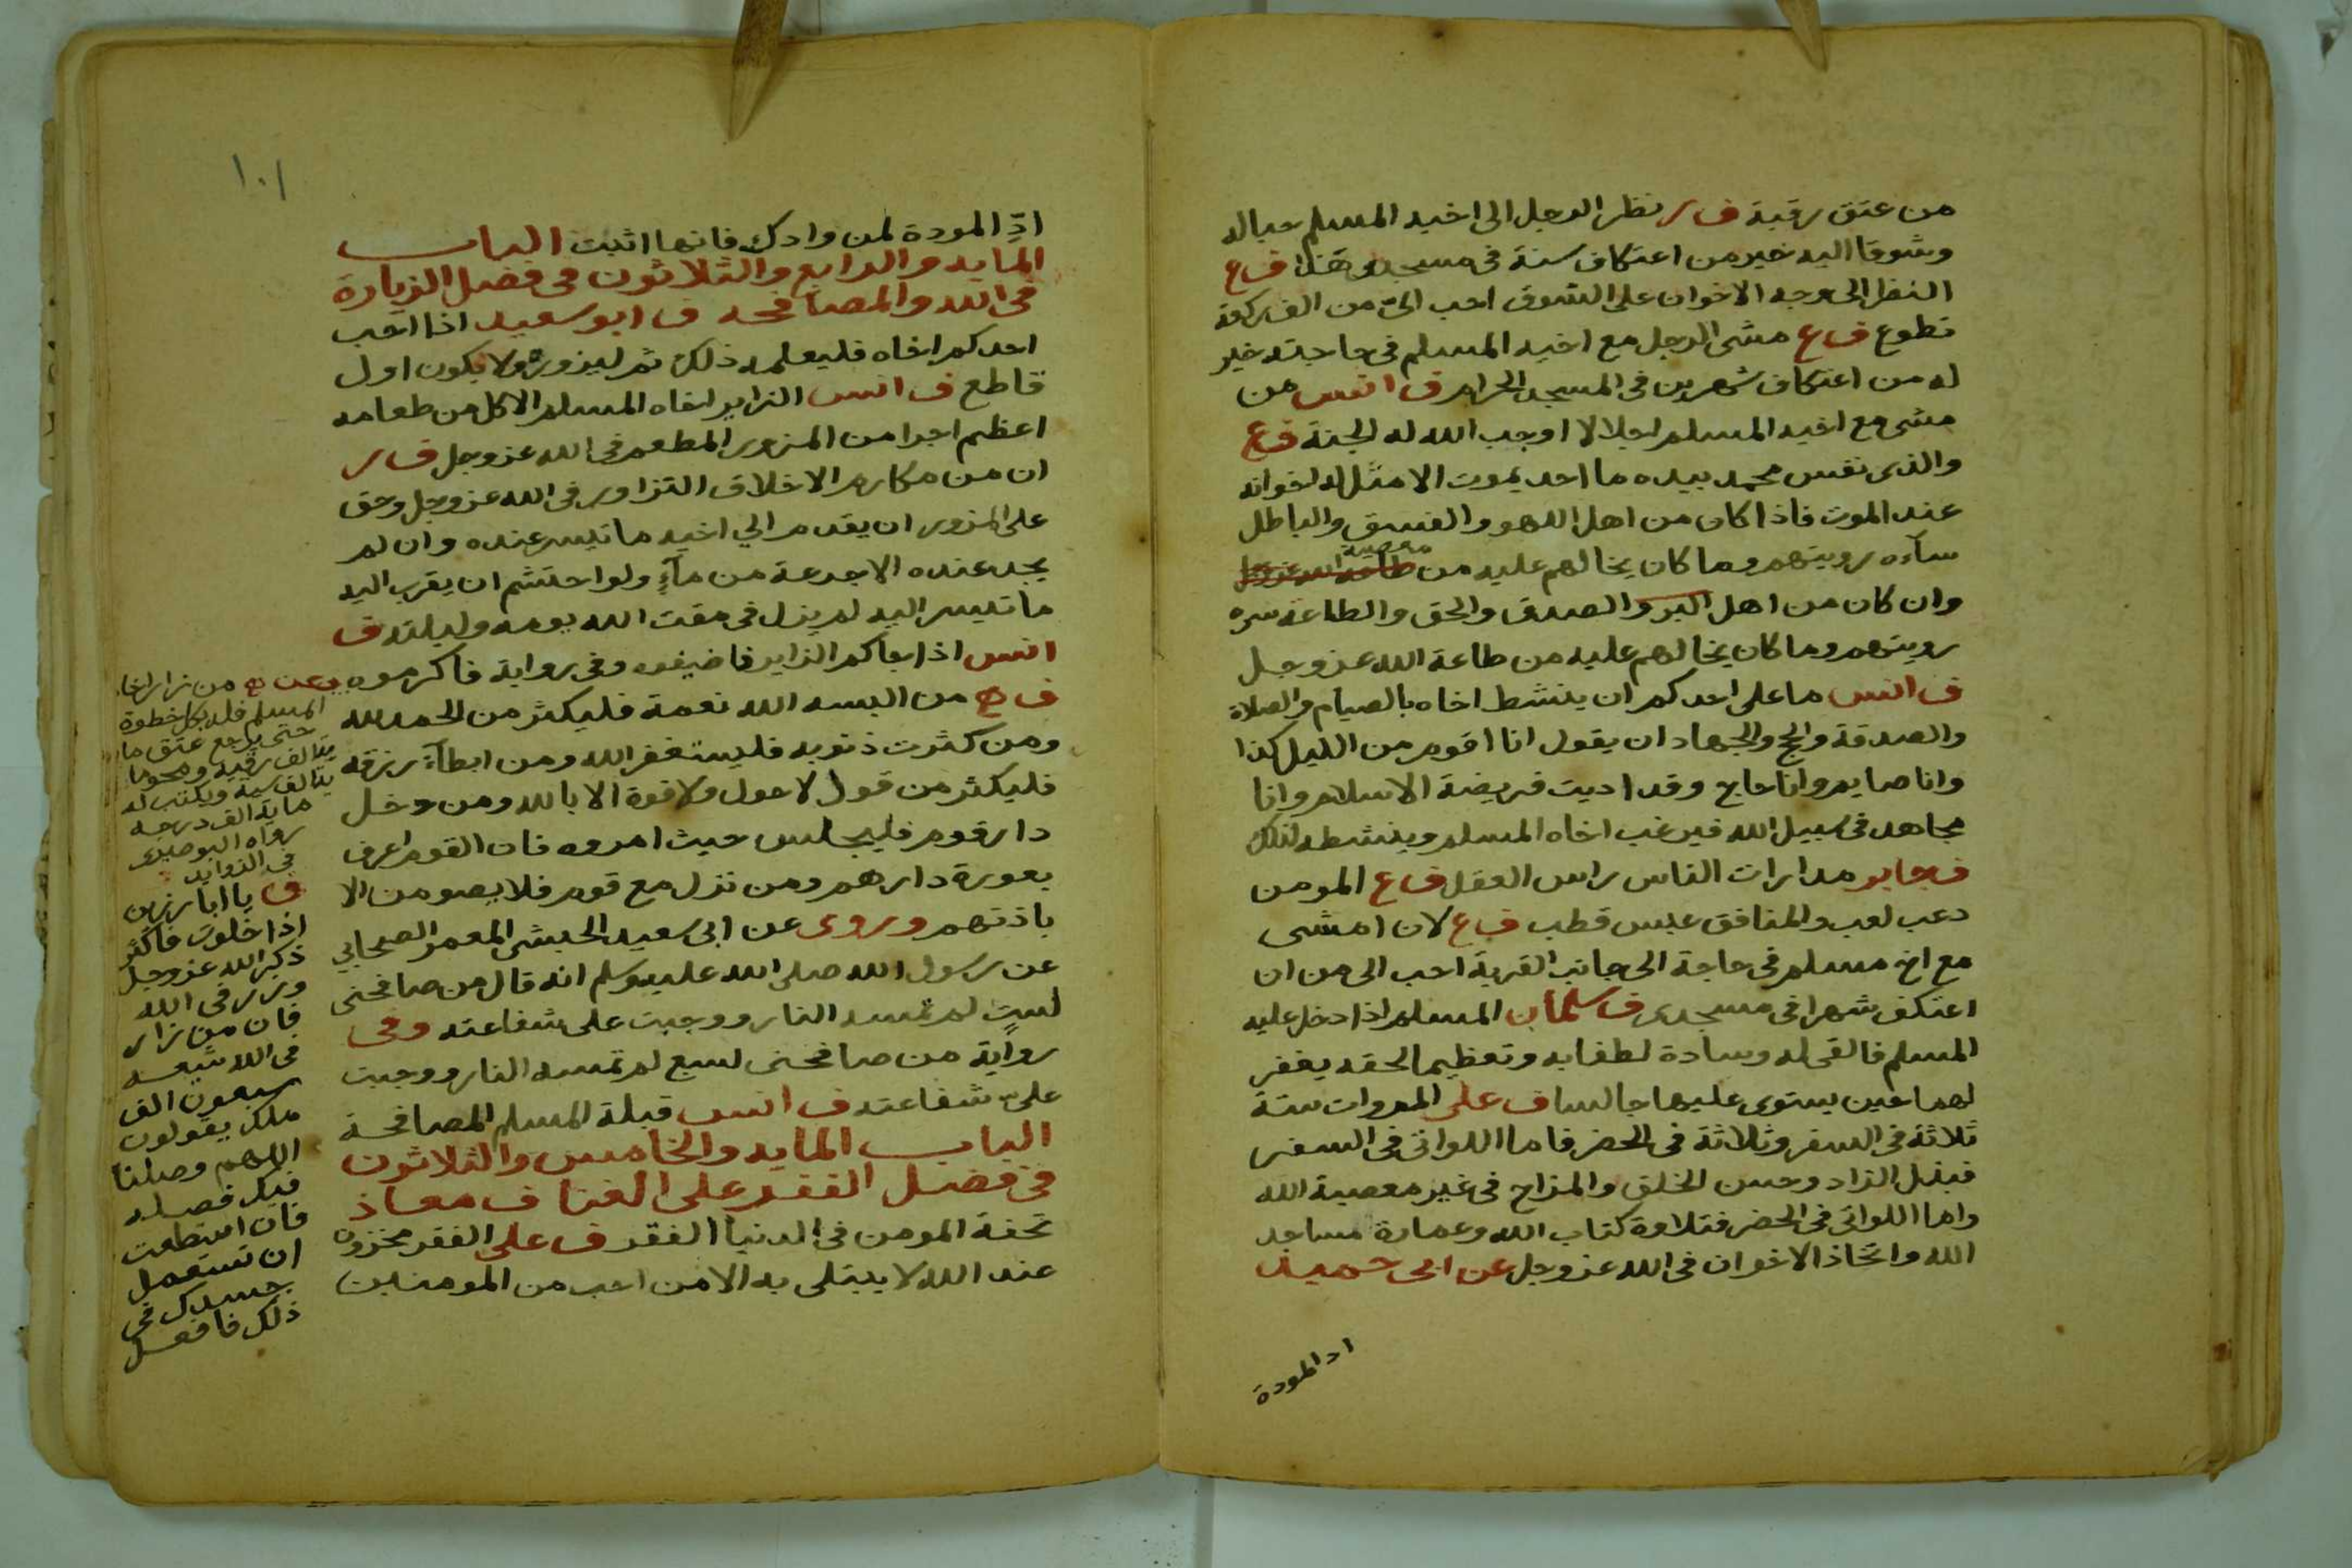 من عتق رقبة ف ر نظر الرجل الى اخيه المسلم حبا له
وشوقا اليه خير من اعتكاف سنة في مسجدي هذا ف ع
النظر الى وجه الاخوان على الشوق احب الي من الف ركعة
تطوع ف ع مشى الرجل مع اخيه المسلم في حاجته خير
له من اعتكاف شهرين في المسجد الحرام ف انس من
مشى مع اخيه المسلم اجلالا اوجب الله له الجنة ف ع
والذى نفس محمد بيده ما احد يموت الا مثل له اخوانه
عند الموت فاذا كان من اهل اللهو والفسق والباطل
ساءه رويتهم وما كان يخالهم عليه من معصية طاعة الله عز وجل
وان كان من اهل البر والصدق والحق والطاعة سره
رويتهم وما كان يخالهم عليه من طاعة الله عز وجل
ف انس ما على احدكم ان ينشط اخاه بالصيام والصلاة
والصدقة والحج والجهاد ان يقول انا اقوم من الليل كذا
وانا صايم وانا حاج وقد اديت فريضة الاسلام وانا
مجاهد في سبيل الله فيرغب اخاه المسلم وينشطه لذلك
ف جابر مدارات الناس راس العقل ف ع المومن
دعب لعب والمنافق عبس قطب ف ع لان امشى
مع اخ مسلم في حاجة الى جانب القرية احب الى من ان
اعتكف شهرا في مسجدى ف سلمان المسلم اذا دخل عليه
المسلم فالقى له وسادة لطفا به وتعظيما لحقه يغفر
لهما حين يستوى عليها جالسا ف على المروات ستة
ثلاثة في السفر وثلاثة في الحضر فاما اللواتى في السفر
فبذل الزاد وحسن الخلق والمزاح في غير معصية الله
واما اللواتى في الحضر فتلاوة كتاب الله وعمارة مساجد
الله واتخاذ الاخوان في الله عز وجل عن ابى حميد
اد المودة
١٠١
ادّ المودة لمن وادك فانها اثبت الباب
المايه والرابع والثلاثون في فضل الزيارة
في الله والمصافحه ف ابو سعيد اذا احب
احدكم اخاه فليعلمه ذلك ثم ليزوره ولا يكون اول
قاطع ف انس الزاير اخاه المسلم الاكل من طعامه
اعظم اجرا من المزور المطعم في الله عز وجل ف ر
ان من مكارم الاخلاق التزاور في الله عز وجل وحق
على المزور ان يقدم الي اخيه ما تيسر عنده وان لم
يجد عنده الا جرعة من ماء ولو احتشم ان يقرب اليه
ما تيسر اليه لم يزل في مقت الله يومه وليلته ف
انس اذا جاكم الزاير فاضيفوه وفى رواية فاكرموه
ف ه من البسه الله نعمة فليكثر من الحمد لله
ومن كثرت ذنوبه فليستغفر الله ومن ابطآء رزقه
فليكثر من قول لا حول ولا قوة الا بالله ومن دخل
دار قوم فليجلس حيث امروه فان القوم اعرف
بعورة دارهم ومن نزل مع قوم فلا يصومن الا
باذنهم وروى عن ابى سعيد الحبشى المعمر الصحابي
عن رسول الله صلى الله عليه وسلم انه قال من صافحنى
لستٍ لم تمسه النار ووجبت على شفاعته وفى
رواية من صافحنى لسبع لم تمسه النار ووجبت
علىّ شفاعته ف انس قبلة المسلم المصافحة
الباب المايه والخامس والثلاثون
في فضل الفقر على الغنا ف معاذ
تحفة المومن في الدنيا الفقر ف على الفقر مخزون
عند الله لا يبتلى به الا من احب من المومنين
وعن ه من زار اخاه
المسلم فله بكل خطوة
حتى يرجع عتق ما
ية الف رقبة ومحو ما
ية الف سية ويكتب له
ماية الف درجه
رواه البوصيرى
في الزوايد
ف يا ابا رزين
اذا خلوت فاكثر
ذكر الله عز وجل
وزر في الله
فان من زار
في الله شيعه
سبعون الف
ملك يقولون
اللهم وصلنا
فيك فصله
فان استطعت
ان تستعمل
جسدك في
ذلك فافعل